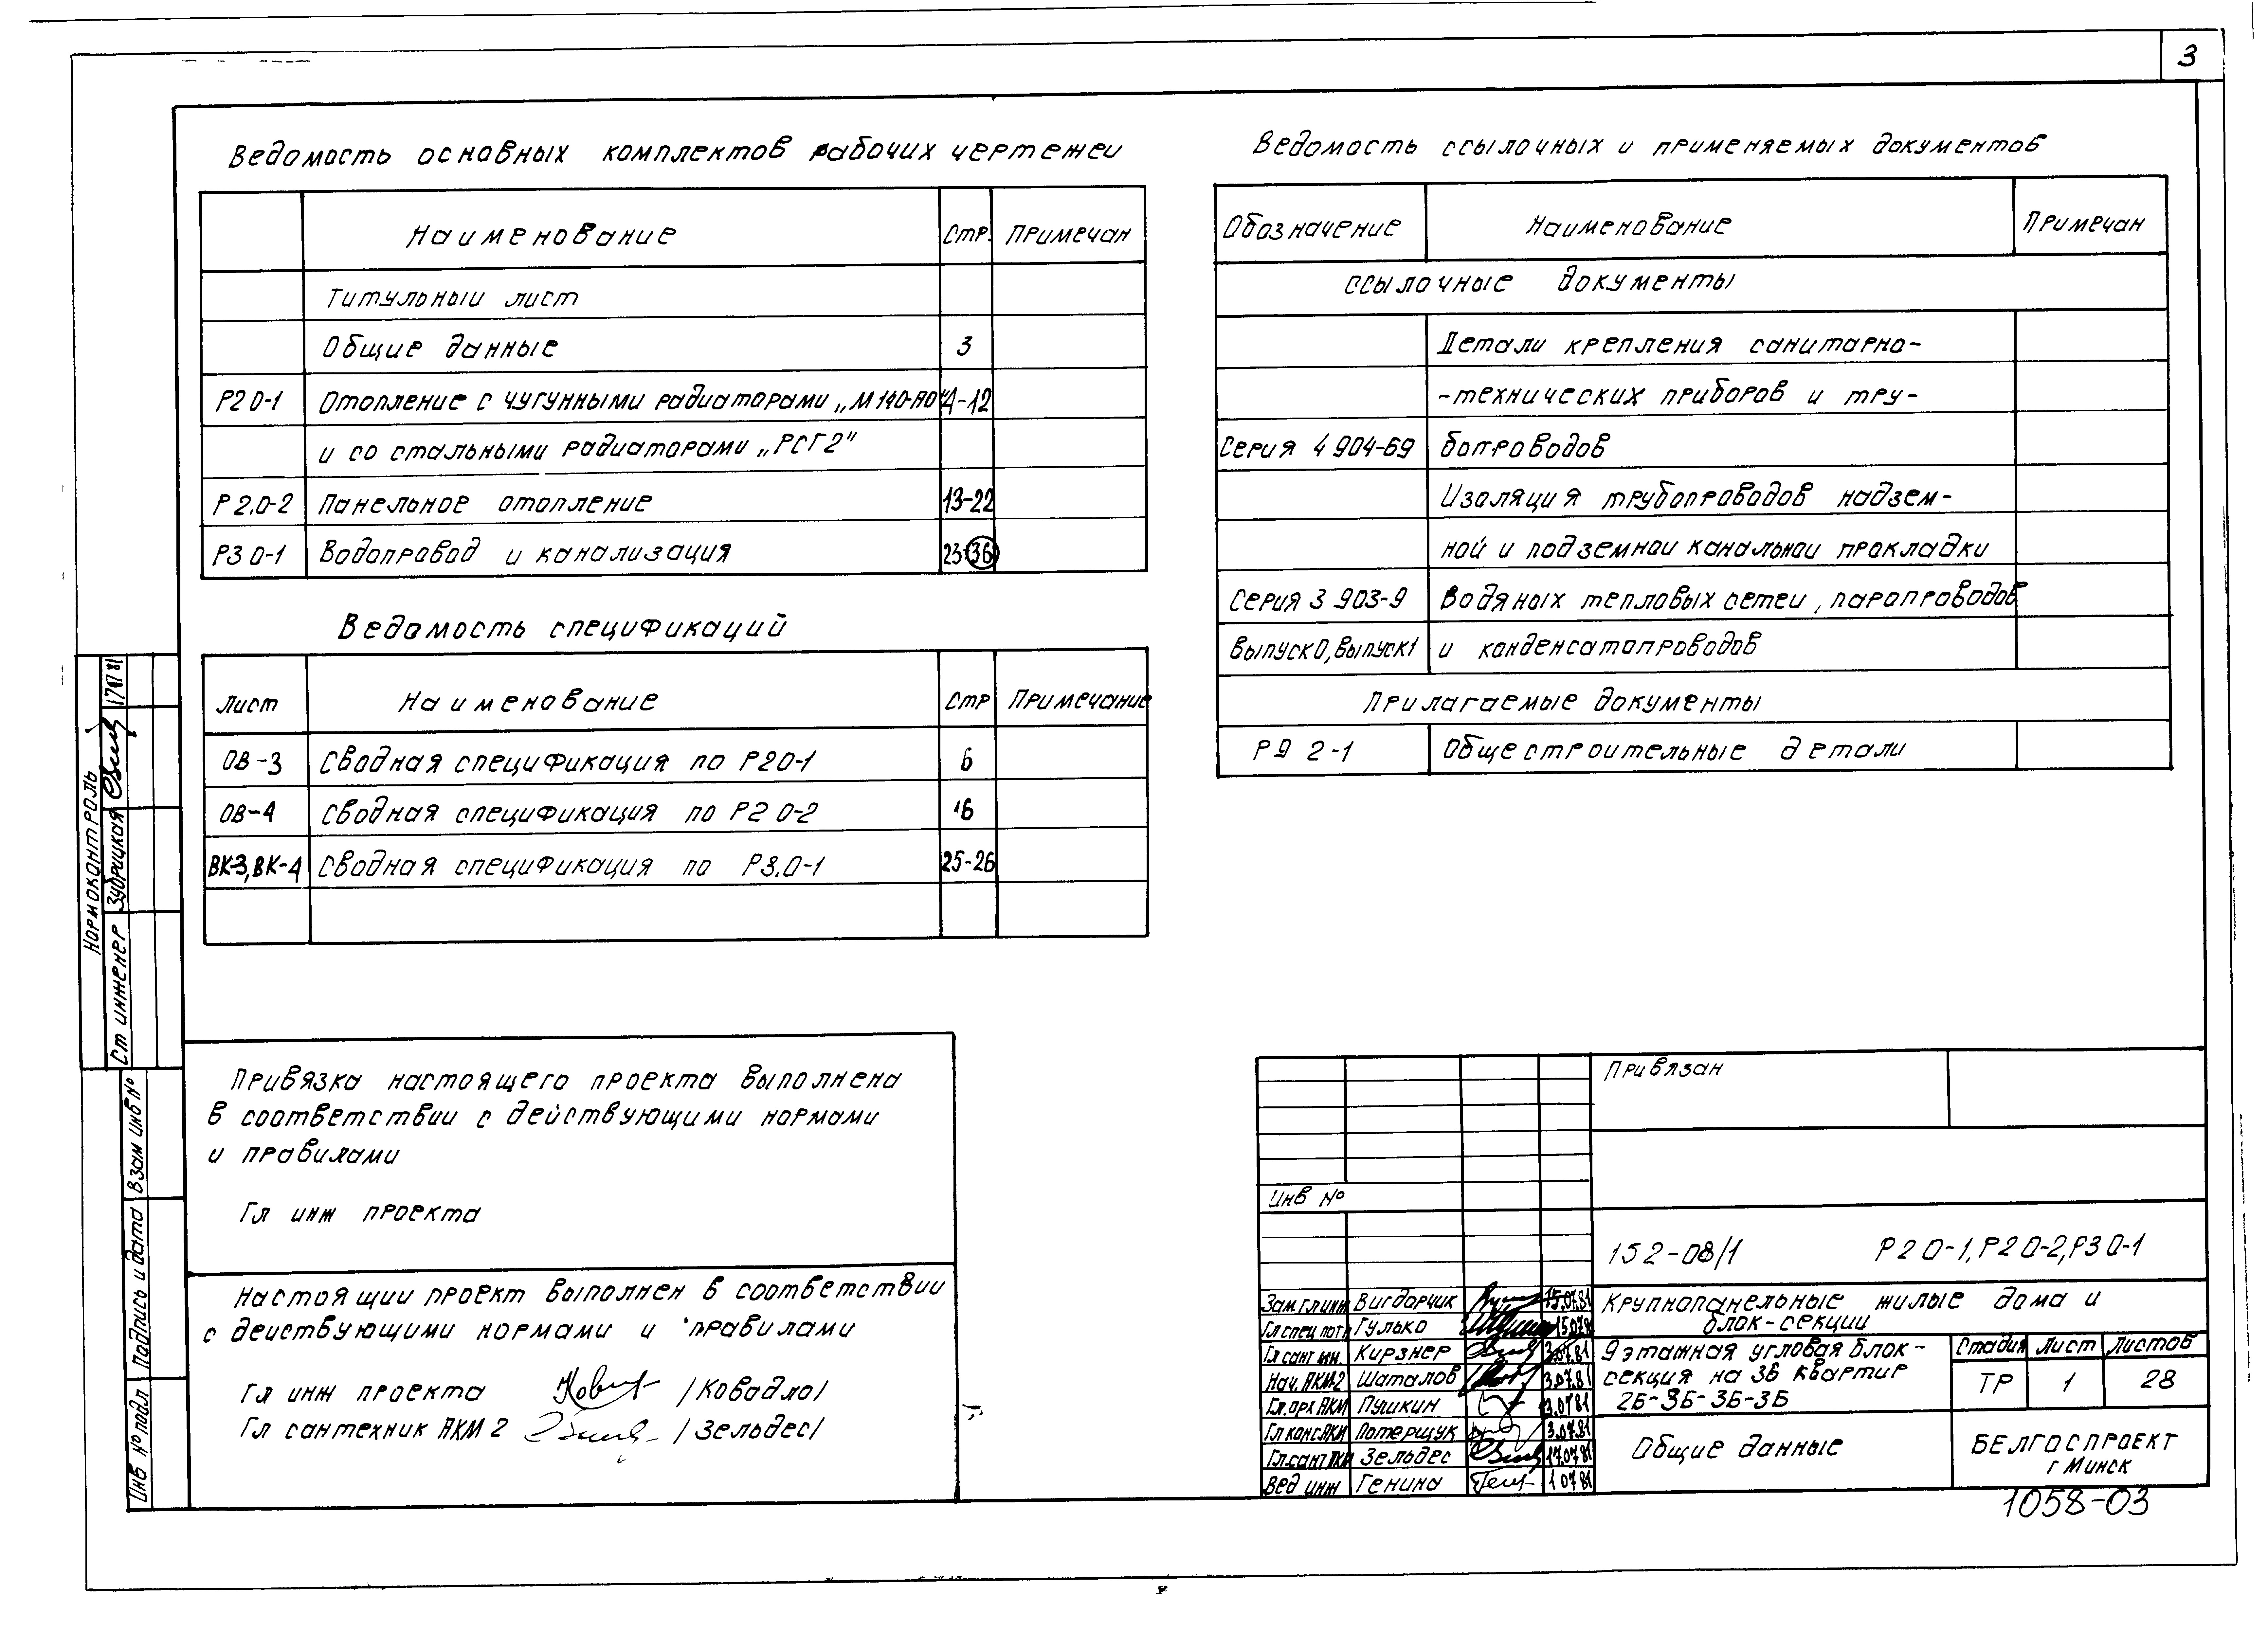 3
Ведомость основных комплектов рабочих чертежеи
Наименование Стр. Примечан
Титульныи лист
Общие данные 3
Р2 0-1 Отопление с чугунными радиаторами „М140-АО" 4-12
и со стальными радиаторами „РСГ2"
Р 2.0-2 Панельное отопление 13-22
Р3 0-1 Водопровод и канализация 23-36
Ведомость спецификаций
Лист Наименование Стр Примечание
ОВ-3 Сводная спецификация по Р2 0-1 6
ОВ-4 Сводная спецификация по Р2 0-2 16
ВК-3, ВК-4 Сводная спецификация по Р3.0-1 25-26
Ведомость ссылочных и применяемых документов
Обозначение Наименование Примечан
ссылочные документы
Детали крепления санитарно-
-технических приборов и тру-
Серия 4 904-69 бопроводов
Изоляция трубопроводов надзем-
ной и подземнои канальнои прокладки
Серия 3 903-9 водяных тепловых сетеи, паропроводов
Выпуск 0, Выпуск 1 и конденсатопроводов
Прилагаемые документы
Р9 2-1 Общестроительные детали
Нормоконтроль
Ст инженер Зубрицкая 17 07 81
Взам инв №
Подпись и дата
Инв № подл
Привязка настоящего проекта выполнена
в соответствии с действующими нормами
и правилами
Гл инж проекта
Настоящии проект выполнен в соответствии
с деиствующими нормами и правилами
Гл инж проекта /Ковадло/
Гл сантехник АКМ 2 /Зельдес/
Привязан
Инв №
152-08/1 Р2 0-1, Р2 0-2, Р3 0-1
Зам.гл.инж Вигдорчик 15.07.81
Гл спец пот Гулько 15.07.8
Гл сант ин. Кирзнер 3.07.81
Нач. АКМ-2 Шаталов 3.07.81
Гл. арх АКМ Пушкин 13.07 81
Гл конс. АКМ Потерщук 3.07.81
Гл. сант АКМ Зельдес 17.07.81
Вед инж Генина 1 07 81
Крупнопанельные жилые дома и
блок-секции
9 этажная угловая блок-
секция на 36 квартир
2Б-3Б-3Б-3Б
Стадия Лист Листов
ТР 1 28
Общие данные
БЕЛГОСПРОЕКТ
г Минск
1058-03